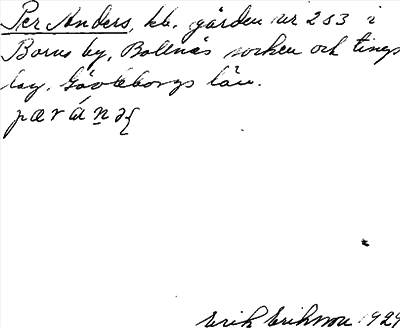 Per Anders, kl. gården nr 2 o 3 i
Borns by, Bollnäs socken och tings
lag. Gävleborgs län.
pæránəʃ
Erik Erikson 1929